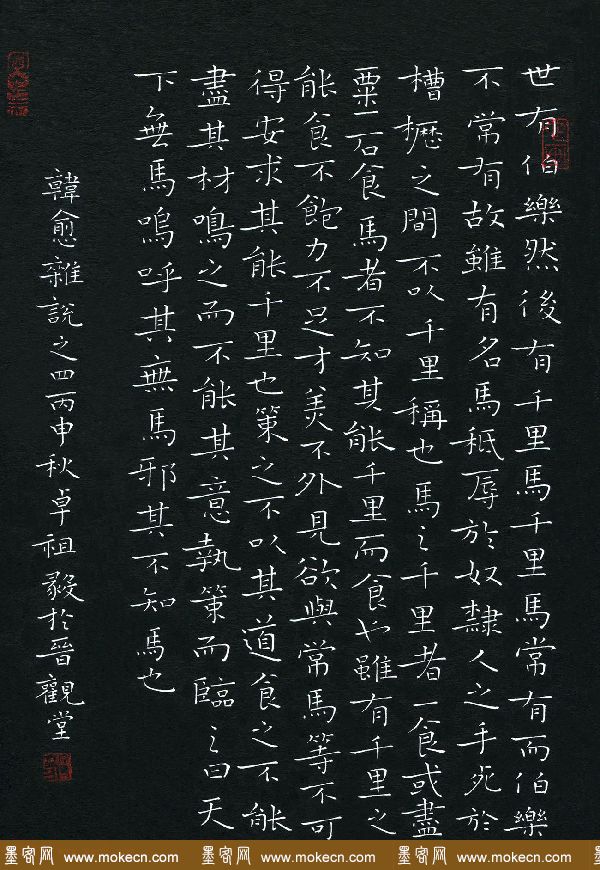 世有伯樂然後有千里馬千里馬常有而伯樂
不常有故雖有名馬秪辱於奴隸人之手死於
槽櫪之間不以千里稱也馬之千里者一食或盡
粟一石食馬者不知其能千里而食也雖有千里之
能食不飽力不足才美不外見欲與常馬等不可
得安求其能千里也策之不以其道食之不能
盡其材鳴之而不能其意執策而臨之曰天
下無馬嗚呼其無馬邪其不知馬也
韓愈雜說之四丙申秋卓祖毅於晉觀堂
墨客网 www.mokecn.com 墨客网 www.mokecn.com 墨客网 www.mokecn.com